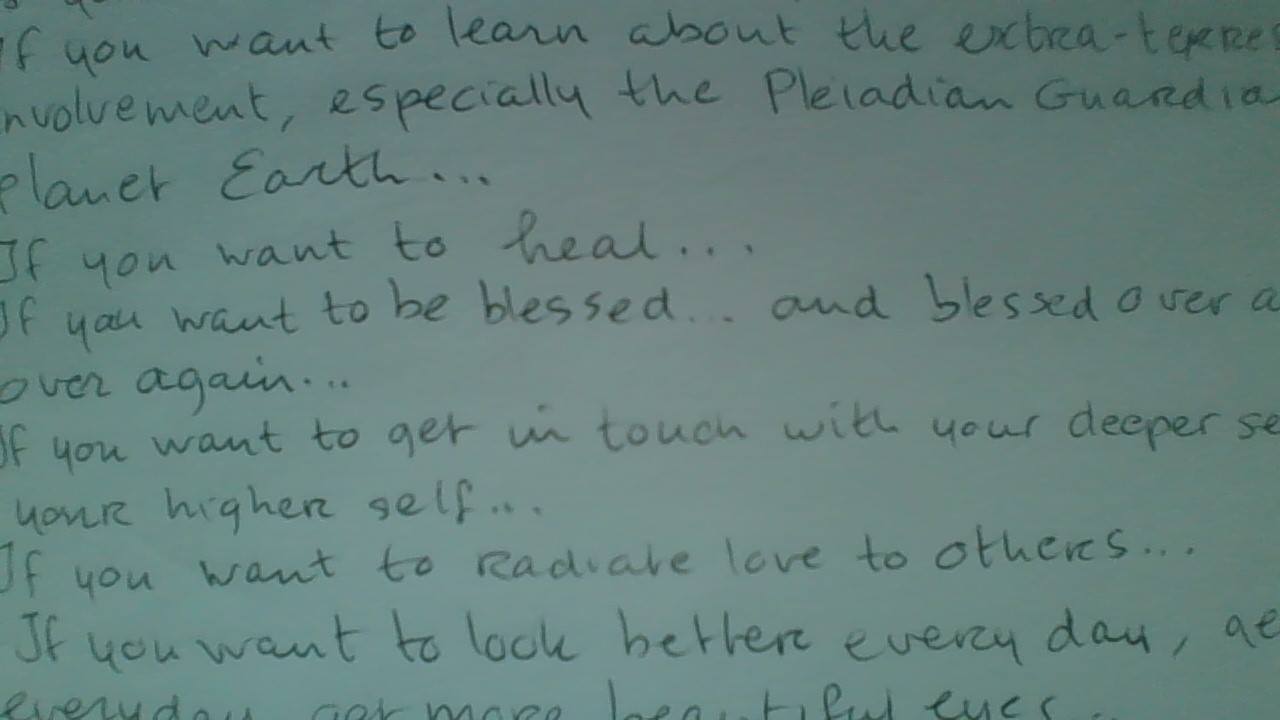 If you want to learn about the extra-terres
nvolvement, especially the Pleiadian Guardia
planet Earth...
If you want to heal...
If you want to be blessed... and blessed over a
over again...
If you want to get in touch with your deeper se
your higher self...
If you want to radiate love to others...
If you want to look better every day, ge
everyday get more beautiful eyes..